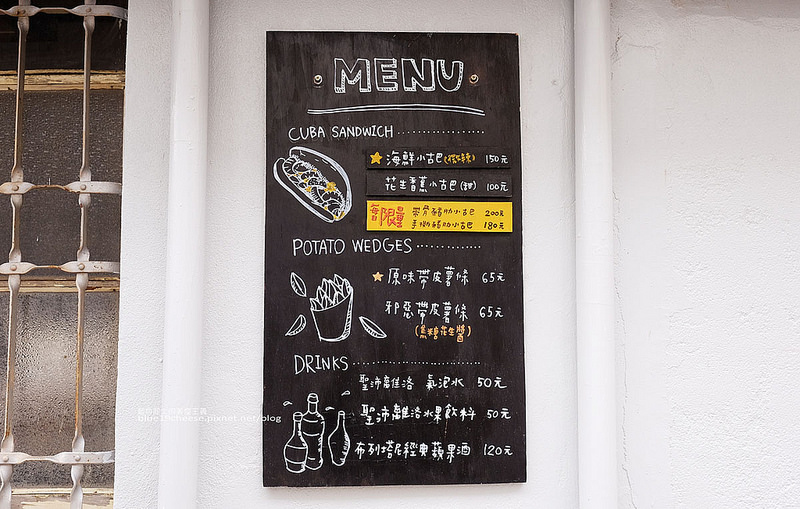 MENU
CUBA SANDWICH
海鮮小古巴(微辣) 150元
花生香蕉小古巴(甜) 100元
每日限量
帶骨豬肋小古巴 200元
手撕豬肋小古巴 180元
POTATO WEDGES
原味帶皮薯條 65元
邪惡帶皮薯條 65元
(焦糖花生醬)
DRINKS
聖沛黎洛 氣泡水 50元
聖沛黎洛水果飲料 50元
布列塔尼經典蘋果酒 120元